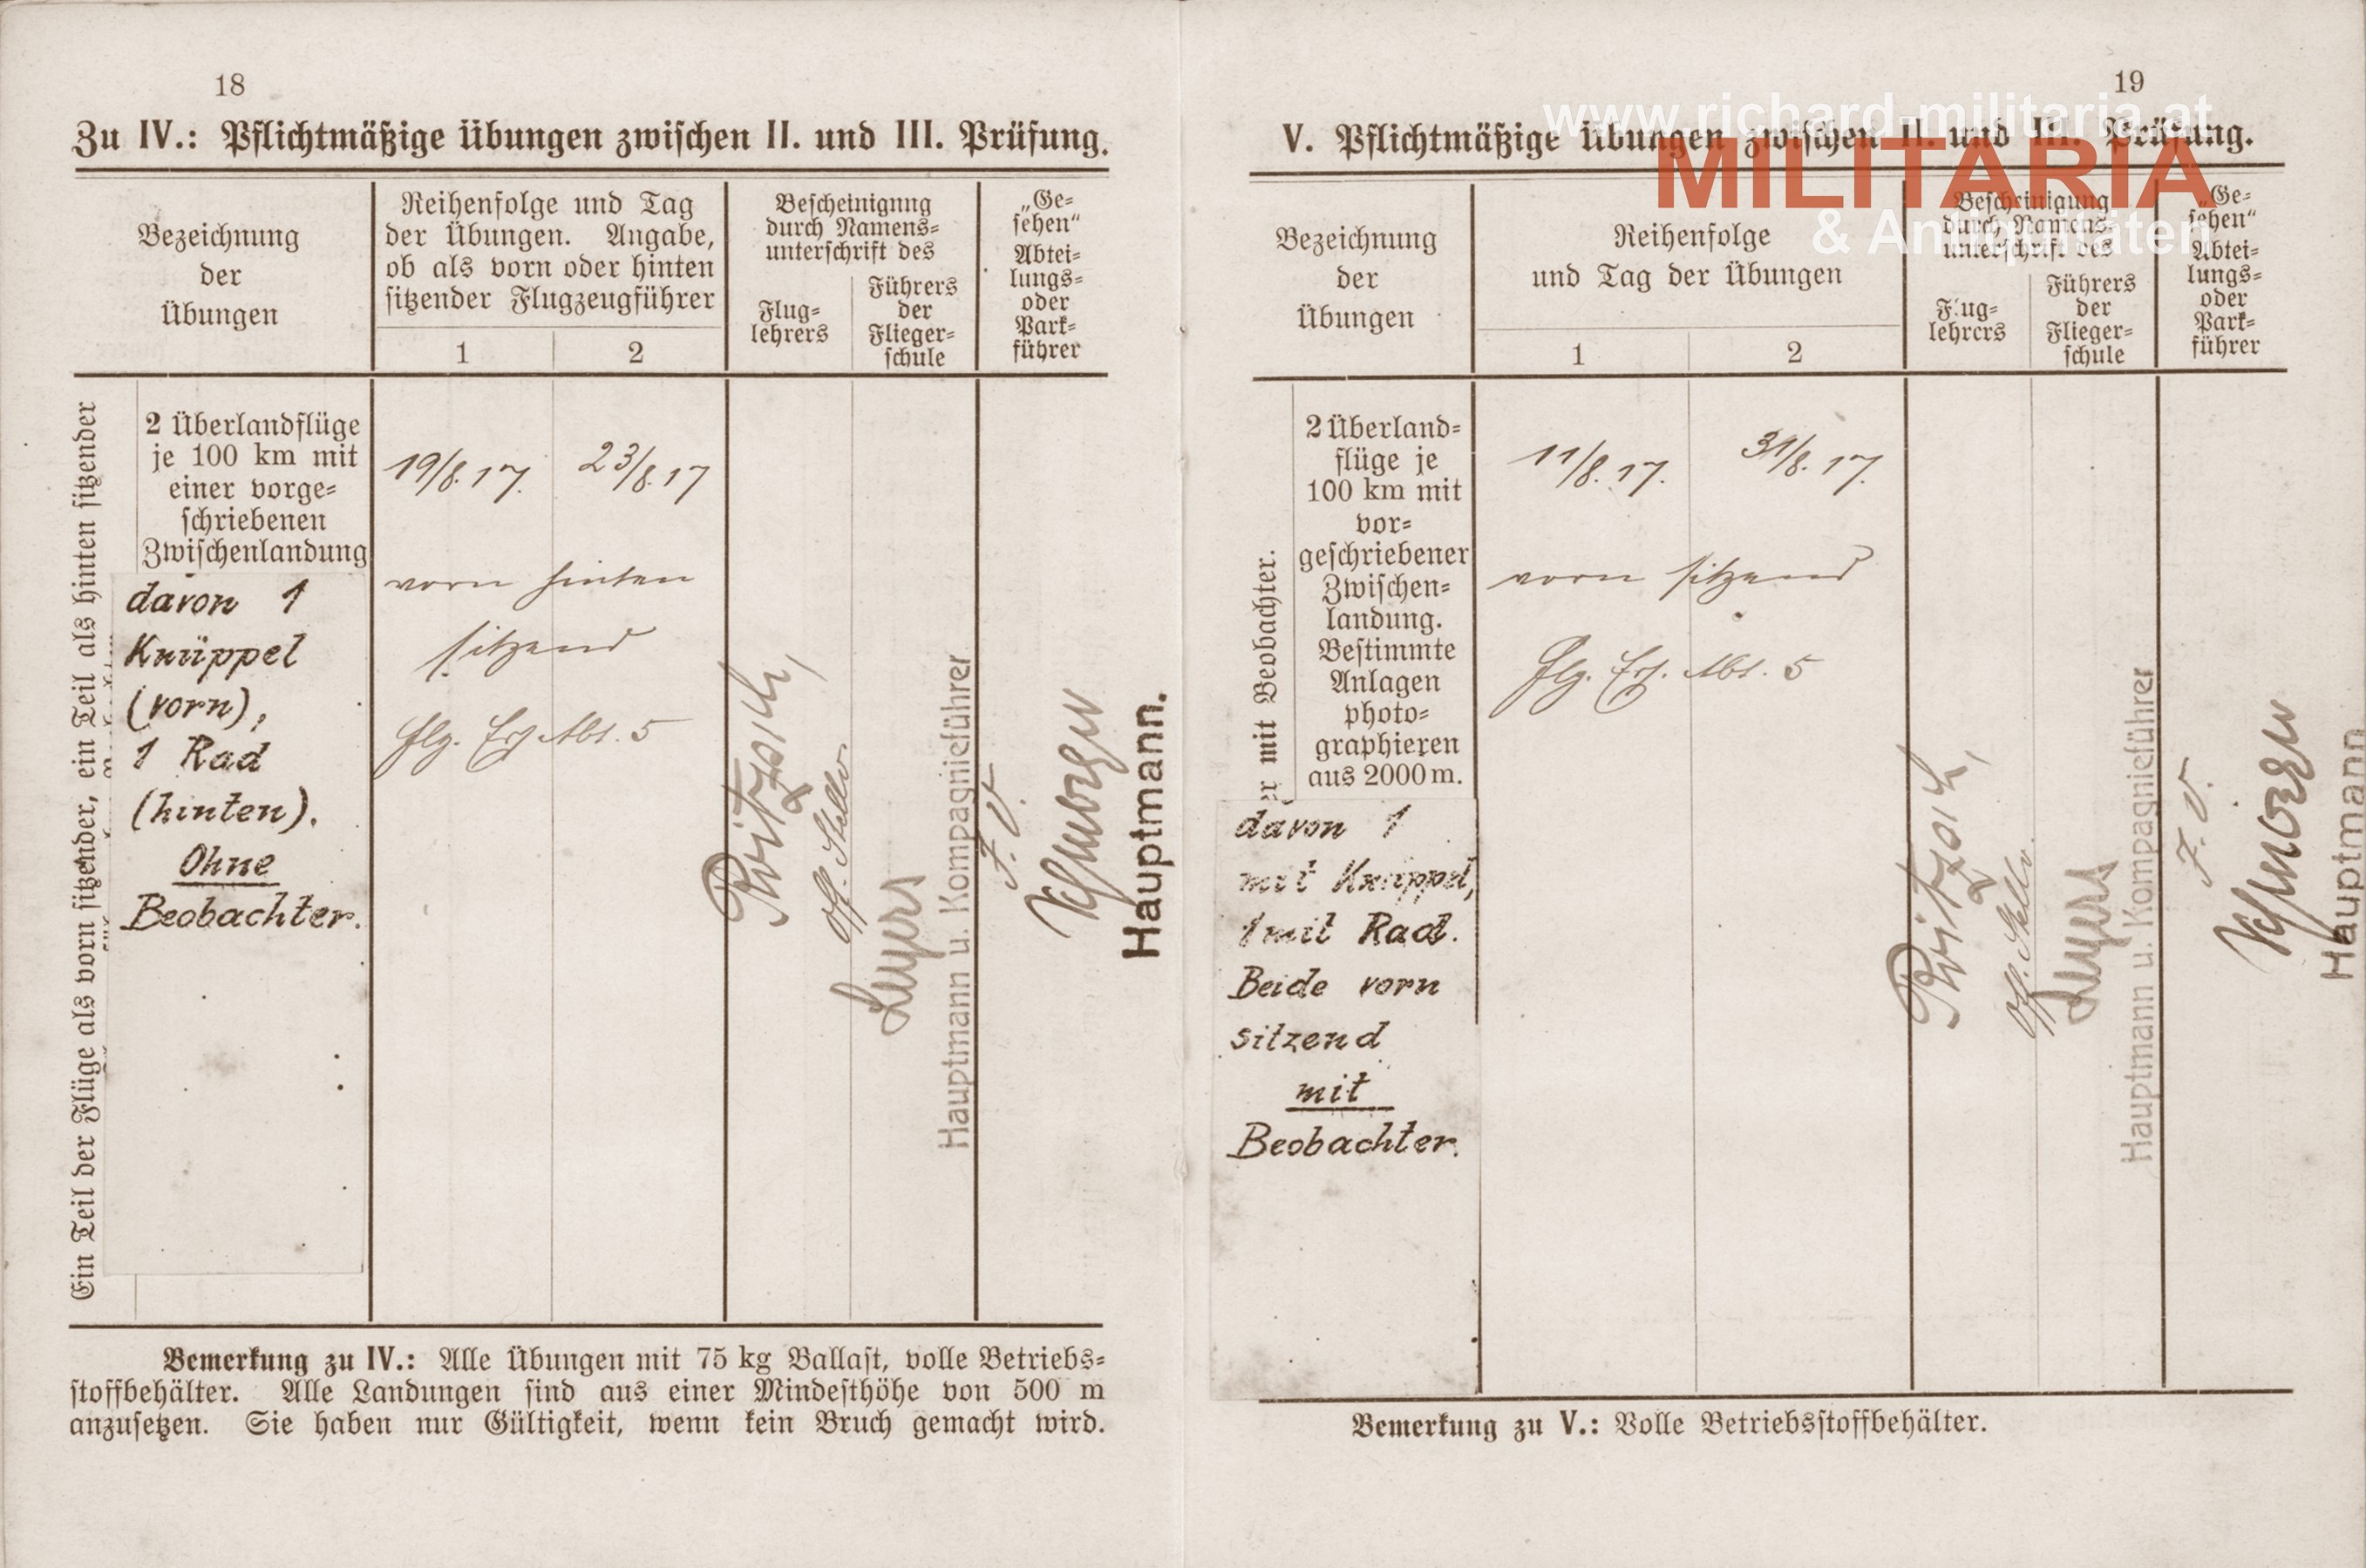 18
Zu IV.: Pflichtmäßige Übungen zwischen II. und III. Prüfung.
Bezeichnung
der
Übungen
Reihenfolge und Tag
der Übungen. Angabe,
ob als vorn oder hinten
sitzender Flugzeugführer
1 2
Bescheinigung
durch Namens-
unterschrift des
Flug-
lehrers
Führers
der
Flieger-
schule
„Ge-
sehen“
Abtei-
lungs-
oder
Park-
führer
Ein Teil der Flüge als vorn sitzender, ein Teil als hinten sitzender
2 Überlandflüge
je 100 km mit
einer vorge-
schriebenen
Zwischenlandung
davon 1
Knüppel
(vorn),
1 Rad
(hinten).
Ohne
Beobachter.
19/8.17. 23/8.17
vorn hinten
sitzend
Flg. Ers. Abt. 5
Off. Stellv.
Hauptmann u. Kompagnieführer
J. V.
Hauptmann.
Bemerkung zu IV.: Alle Übungen mit 75 kg Ballast, volle Betriebs-
stoffbehälter. Alle Landungen sind aus einer Mindesthöhe von 500 m
anzusetzen. Sie haben nur Gültigkeit, wenn kein Bruch gemacht wird.
19
www.richard-militaria.at
MILITARIA
& Antiquitäten
V. Pflichtmäßige Übungen zwischen II. und III. Prüfung.
Bezeichnung
der
Übungen
Reihenfolge
und Tag der Übungen
1 2
Bescheinigung
durch Namens-
unterschrift des
Flug-
lehrers
Führers
der
Flieger-
schule
„Ge-
sehen“
Abtei-
lungs-
oder
Park-
führer
er mit Beobachter.
2 Überland-
flüge je
100 km mit
vor-
geschriebener
Zwischen-
landung.
Bestimmte
Anlagen
photo-
graphieren
aus 2000 m.
davon 1
mit Knüppel,
1 mit Rad.
Beide vorn
sitzend
mit
Beobachter.
11/8.17. 31/8.17.
vorn sitzend
Flg. Ers. Abt. 5
Off. Stellv.
Hauptmann u. Kompagnieführer
J. V.
Hauptmann
Bemerkung zu V.: Volle Betriebsstoffbehälter.